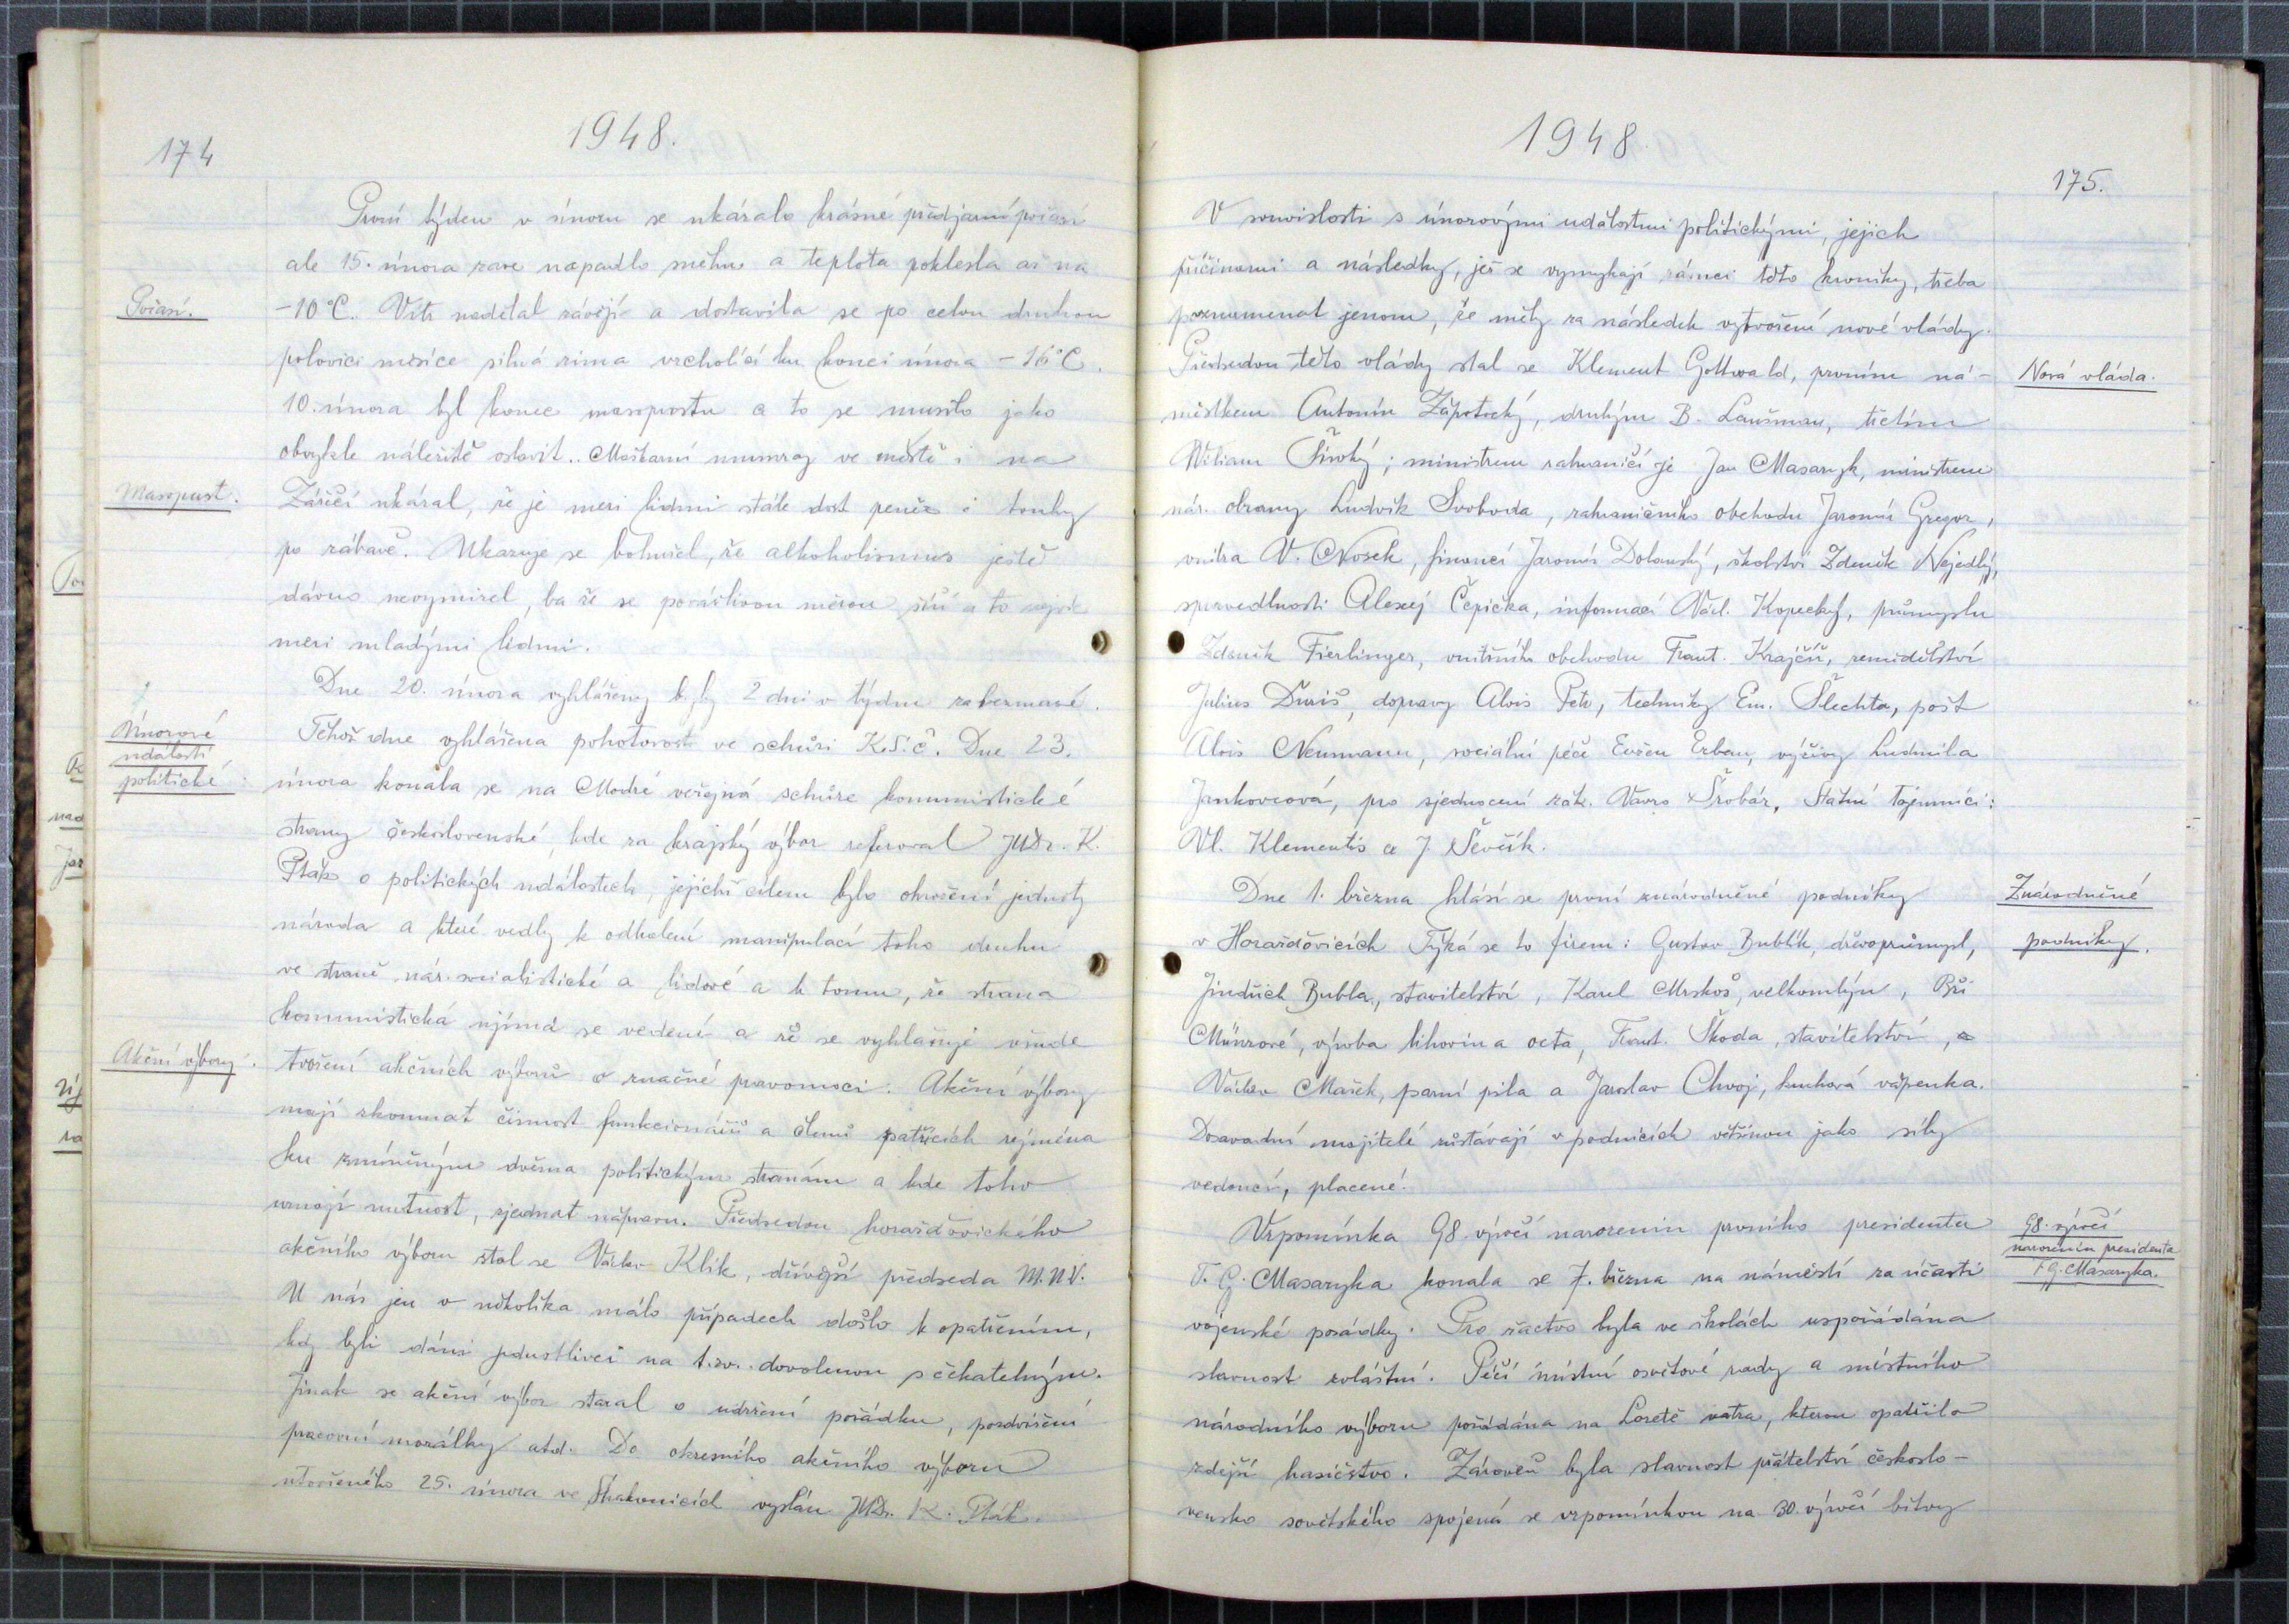 174
1948.
První týden v únoru se ukázalo krásné předjarní počasí
ale 15. února zase napadlo sněhu a teplota poklesla až na
Počasí.
-10°C. Vítr nadělal závějí a dostavila se po celou druhou
polovici měsíce silná zima vrcholící ku konci února -16°C.
10. února byl konec masopustu a to se musilo jako
obvykle náležitě oslavit. Maškarní mumraj ve městě i na
Masopust.
Záříčí ukázal, že je mezi lidmi stále dost peněz i touhy
po zábavě. Ukazuje se bohužel, že alkoholismus ještě
dávno nevymizel, ba že se povážlivou měrou šíří a to nejvíc
mezi mladými lidmi.
Dne 20. února vyhlášeny byly 2 dni v týdnu za bezmasé.
Únorové
události
politické
Téhož dne vyhlášena pohotovost ve schůzi K.S.Č. Dne 23.
února konala se na Modré veřejná schůze komunistické
strany československé, kde za krajský výbor referoval JUDr. K.
Pták o politických událostech, jejichž cílem bylo ohrožení jednoty
národa a které vedly k odhalení manipulací toho druhu
ve straně nár. socialistické a lidové a k tomu, že strana
komunistická ujímá se vedení a že se vyhlašuje všude
Akční výbory.
tvoření akčních výborů o značné pravomoci. Akční výbory
mají zkoumat činnost funkcionářů a členů patřících zejména
ku zmíněným dvěma politickým stranám a kde toho
uznají nutnost, zjednat nápravu. Předsedou horažďovického
akčního výboru stal se Václav Klik, dřívější předseda M.N.V.
U nás jen v několika málo případech došlo k opatřením,
kdy byli dáni jednotlivci na t.zv. dovolenou s čekatelným.
Jinak se akční výbor staral o udržení pořádku, pozdvižení
pracovní morálky atd. Do okresního akčního výboru
utvořeného 25. února ve Strakonicích vyslán JUDr. K. Pták.
1948.
175.
V souvislosti s únorovými událostmi politickými, jejich
příčinami a následky, jež se vymykají rámci této kroniky, třeba
poznamenat jenom, že měly za následek vytvoření nové vlády.
Předsedou této vlády stal se Klement Gottwald, prvním ná-
Nová vláda.
městkem Antonín Zápotocký, druhým B. Laušman, třetím
Viliam Široký; ministrem zahraničí je Jan Masaryk, ministrem
nár. obrany Ludvík Svoboda, zahraničního obchodu Jaromír Gregor,
vnitra V. Nosek, financí Jaromír Dolanský, školství Zdeněk Nejedlý,
spravedlnosti Alexej Čepička, informací Václ. Kopecký, průmyslu
Zdeněk Fierlinger, vnitřního obchodu Frant. Krajčíř, zemědělství
Julius Ďuriš, dopravy Alois Petr, techniky Em. Šlechta, pošt
Alois Neumann, sociální péče Evžen Erban, výživy Ludmila
Jankovcová, pro sjednocení zák. Vavro Šrobár, Státní tajemníci:
Vl. Klementis a J. Ševčík.
Dne 1. března hlásí se první znárodněné podniky
Znárodněné
v Horažďovicích Týká se to firem: Gustav Bublík, dřevoprůmysl,
podniky.
Jindřich Bubla, stavitelství, Karel Mrskoš, velkomlýn, Bří
Münzové, výroba lihovin a octa, Frant. Škoda, stavitelství, a
Václav Mašek, parní pila a Jaroslav Chvoj, kruhová vápenka.
Dosavadní majitelé zůstávají v podnicích většinou jako síly
vedoucí, placené.
Vzpomínka 98. výročí narozenin prvního presidenta
98. výročí
narozenin presidenta
T. G. Masaryka.
T. G. Masaryka konala se 7. března na náměstí za účasti
vojenské posádky. Pro žactvo byla ve školách uspořádána
slavnost zvláštní. Péčí místní osvětové rady a místního
národního výboru pořádána na Loretě vatra, kterou opatřilo
zdejší hasičstvo. Zároveň byla slavnost přátelství českoslo-
vensko sovětského spojená se vzpomínkou na 30. výročí bitvy